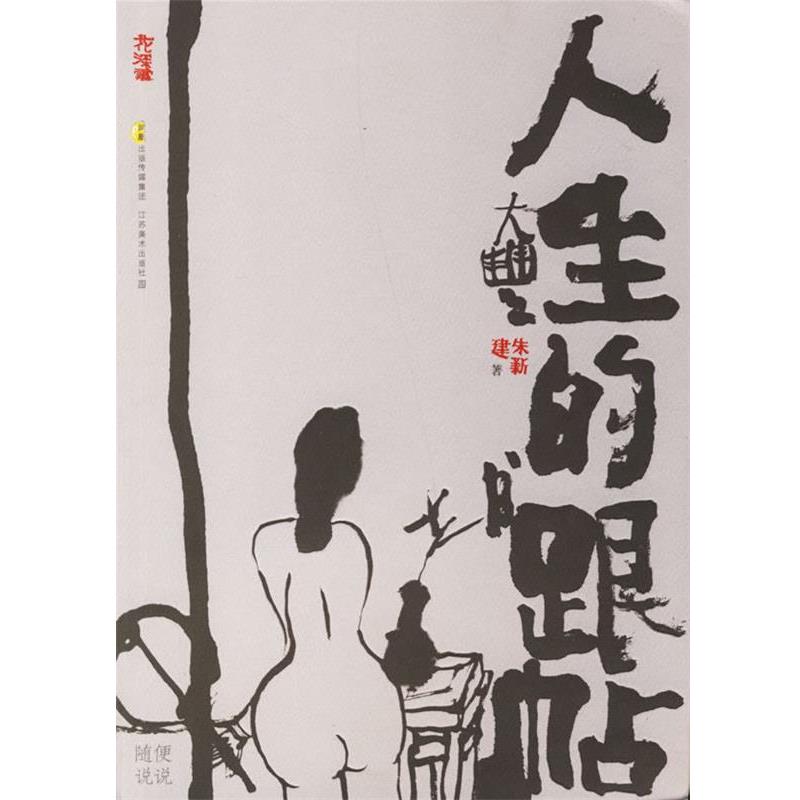 人生的跟帖
朱新建
著
凤凰出版传媒集团 江苏美术出版社
随便
说说